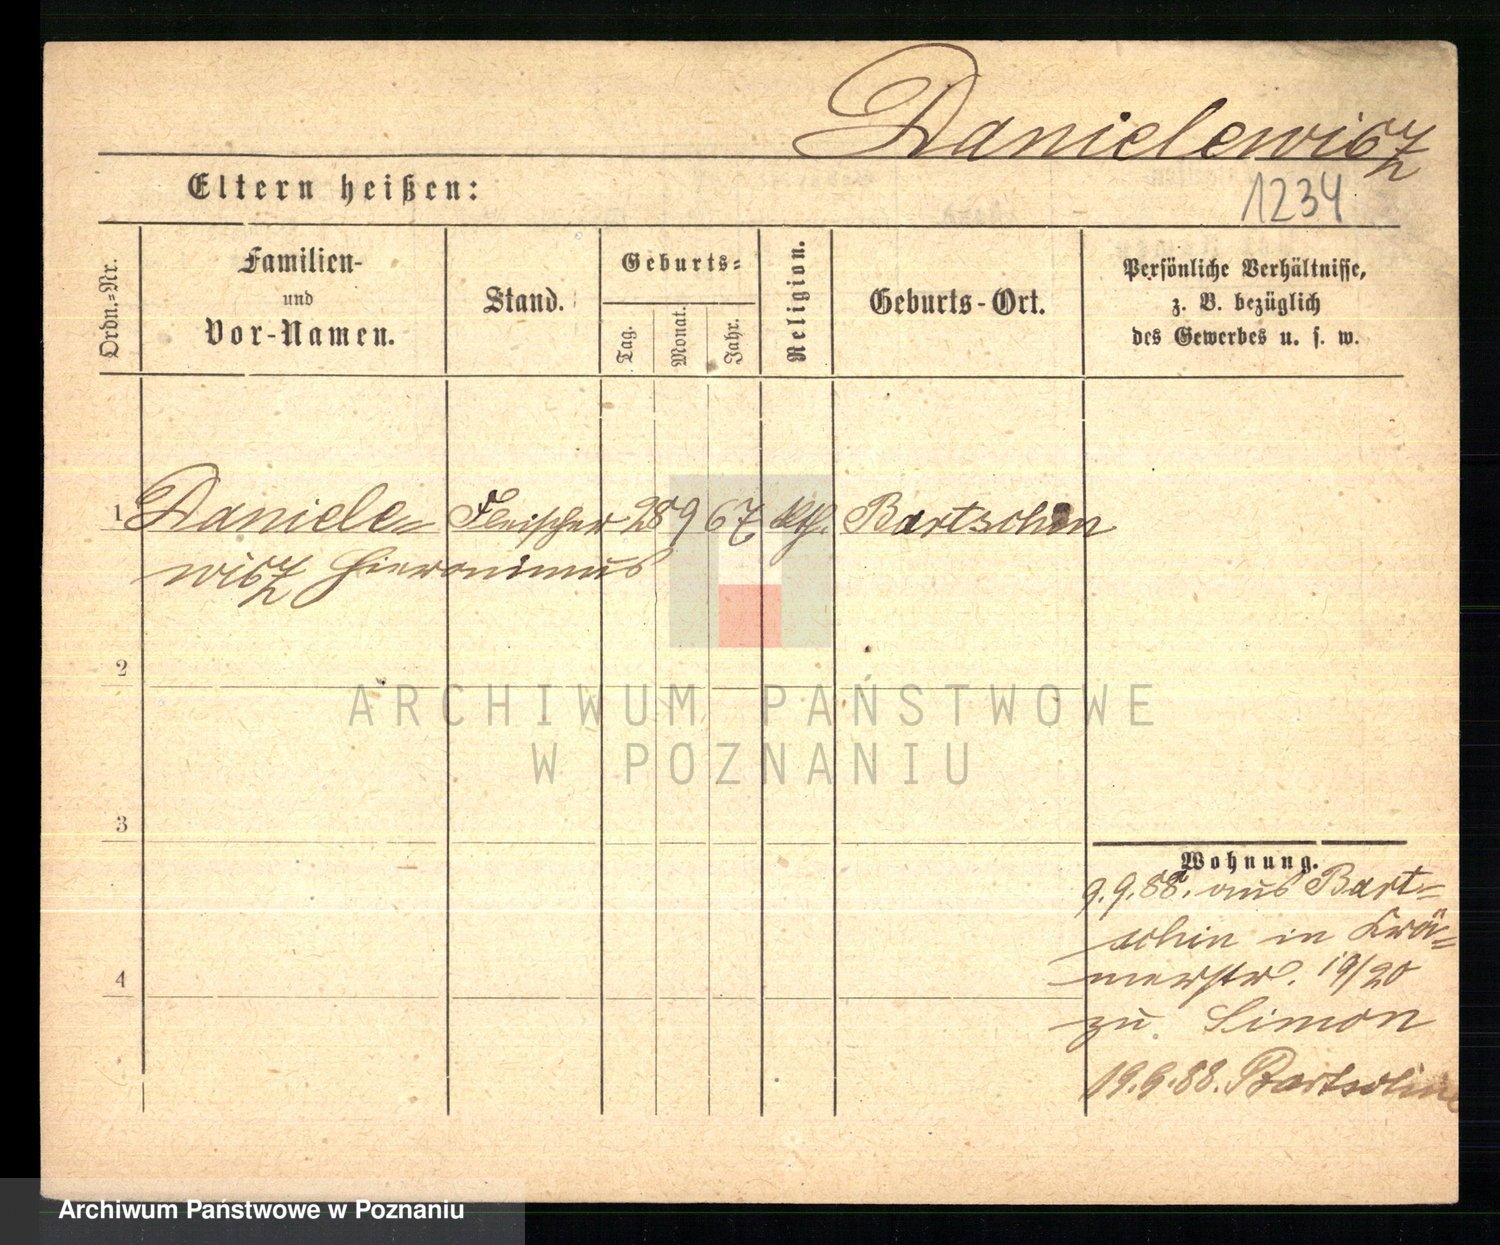 Danielewicz
Eltern heißen:
1234
Ordn.=Nr.
Familien-
und
Vor-Namen.
Stand.
Geburts=
Tag.
Monat.
Jahr.
Religion.
Geburts-Ort.
Persönliche Verhältnisse,
z. B. bezüglich
des Gewerbes u. s. w.
1 Daniele= Fleischer 28 9 67 kth. Bartschin
wicz Hieronimus
2
ARCHIWUM PAŃSTWOWE
W POZNANIU
3
Wohnung.
9.9.88. aus Bart=
schin in Krä=
4
merstr. 19/20
zu Simon
19.9.88. Bartschin
Archiwum Państwowe w Poznaniu